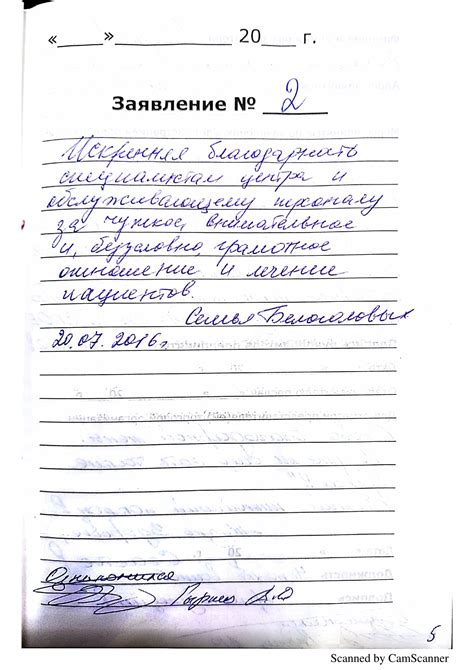 «____»____________ 20___ г.
Заявление № 2
Искренняя благодарность
специалистам центра и
обслуживающему персоналу
за чуткое, внимательное
и, безусловно, грамотное
отношение и лечение
пациентов.
Семья Белоголовых
20.07.2016г.
Ознакомился
5
Scanned by CamScanner